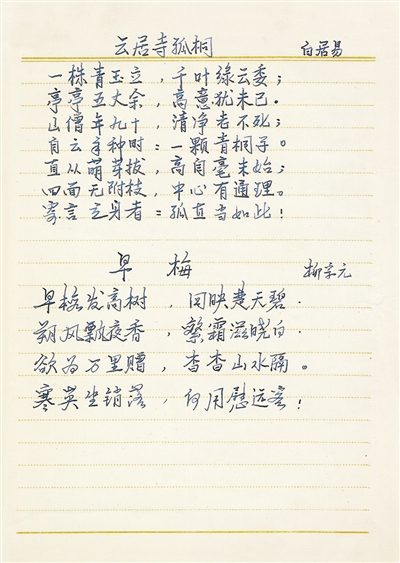 云居寺孤桐 白居易
一株青玉立，千叶绿云委；
亭亭五丈余，高意犹未已。
山僧年九十，清净老不死；
自云手种时：一颗青桐子。
直从萌芽拔，高自毫末始；
四面无附枝，中心有通理。
寄言立身者：孤直当如此！
早 梅 柳宗元
早梅发高树，回映楚天碧．
朔风飘夜香，繁霜滋晓白．
欲为万里赠，杳杳山水隔。
寒英坐销落，何用慰远客！